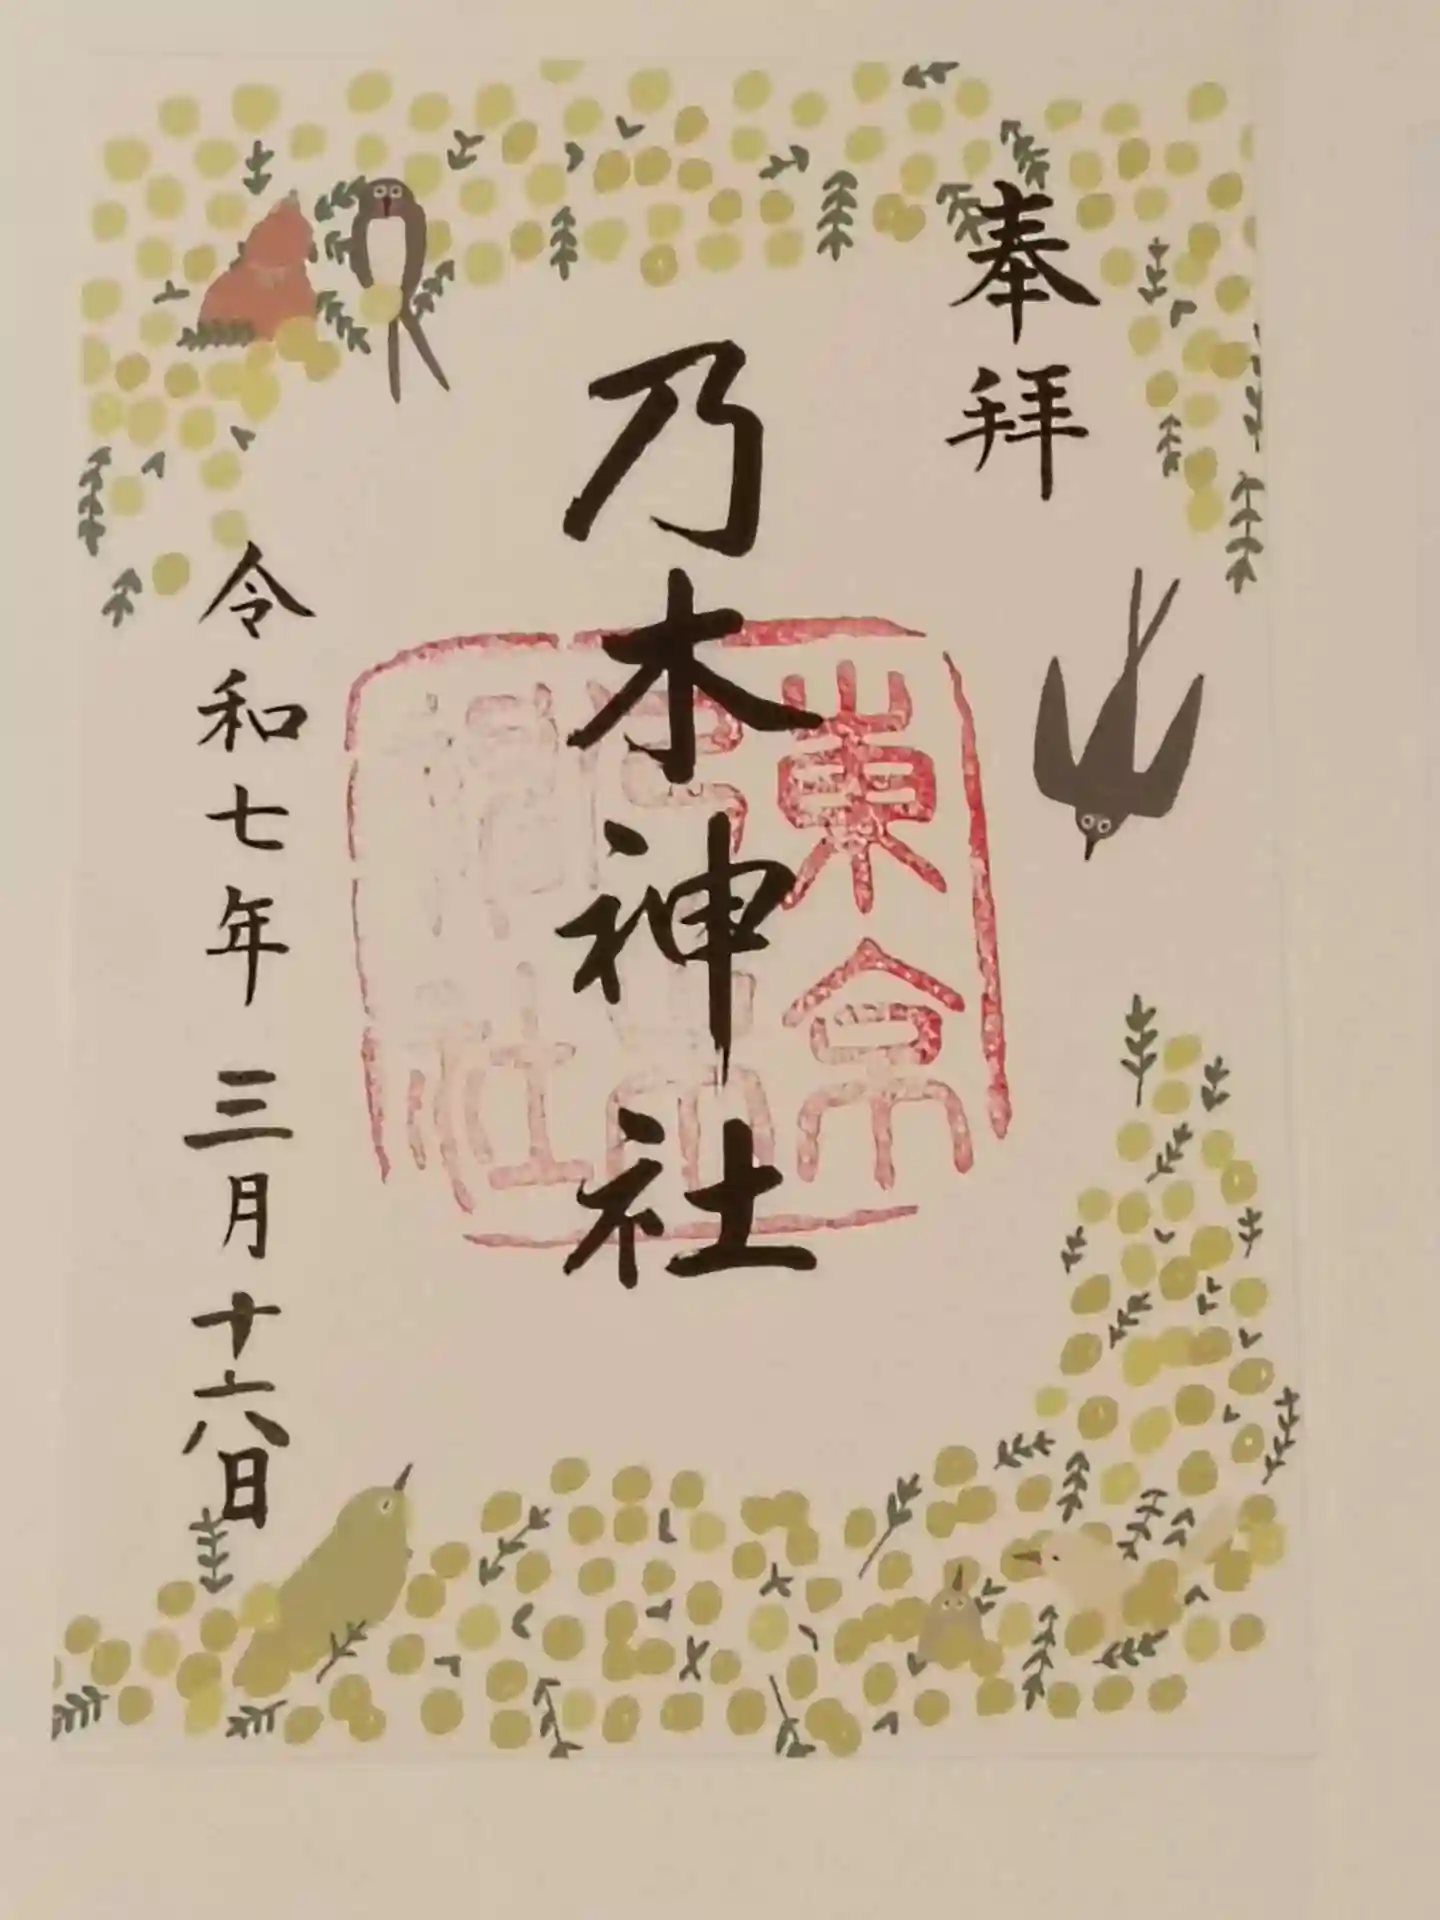 奉拝
乃木神社
東京
令和七年三月十六日